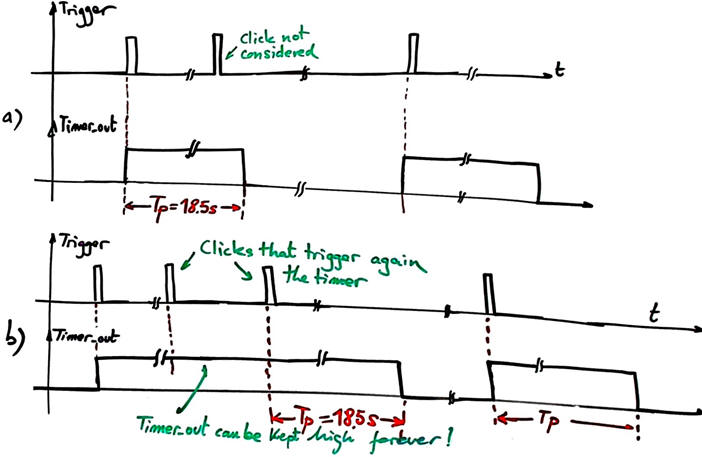 Trigger
Click not
considered
t
a)
Timer_out
Tp=18.5s
Trigger
Clicks that trigger again
the timer
t
b)
Timer_out
Tp=18.5s
Tp
Timer_out can be kept high forever!